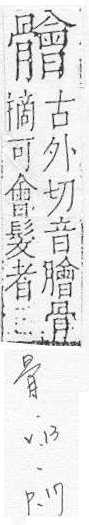 䯤
古外切音膾骨
摘可會髮者
骨
v.13
p.17